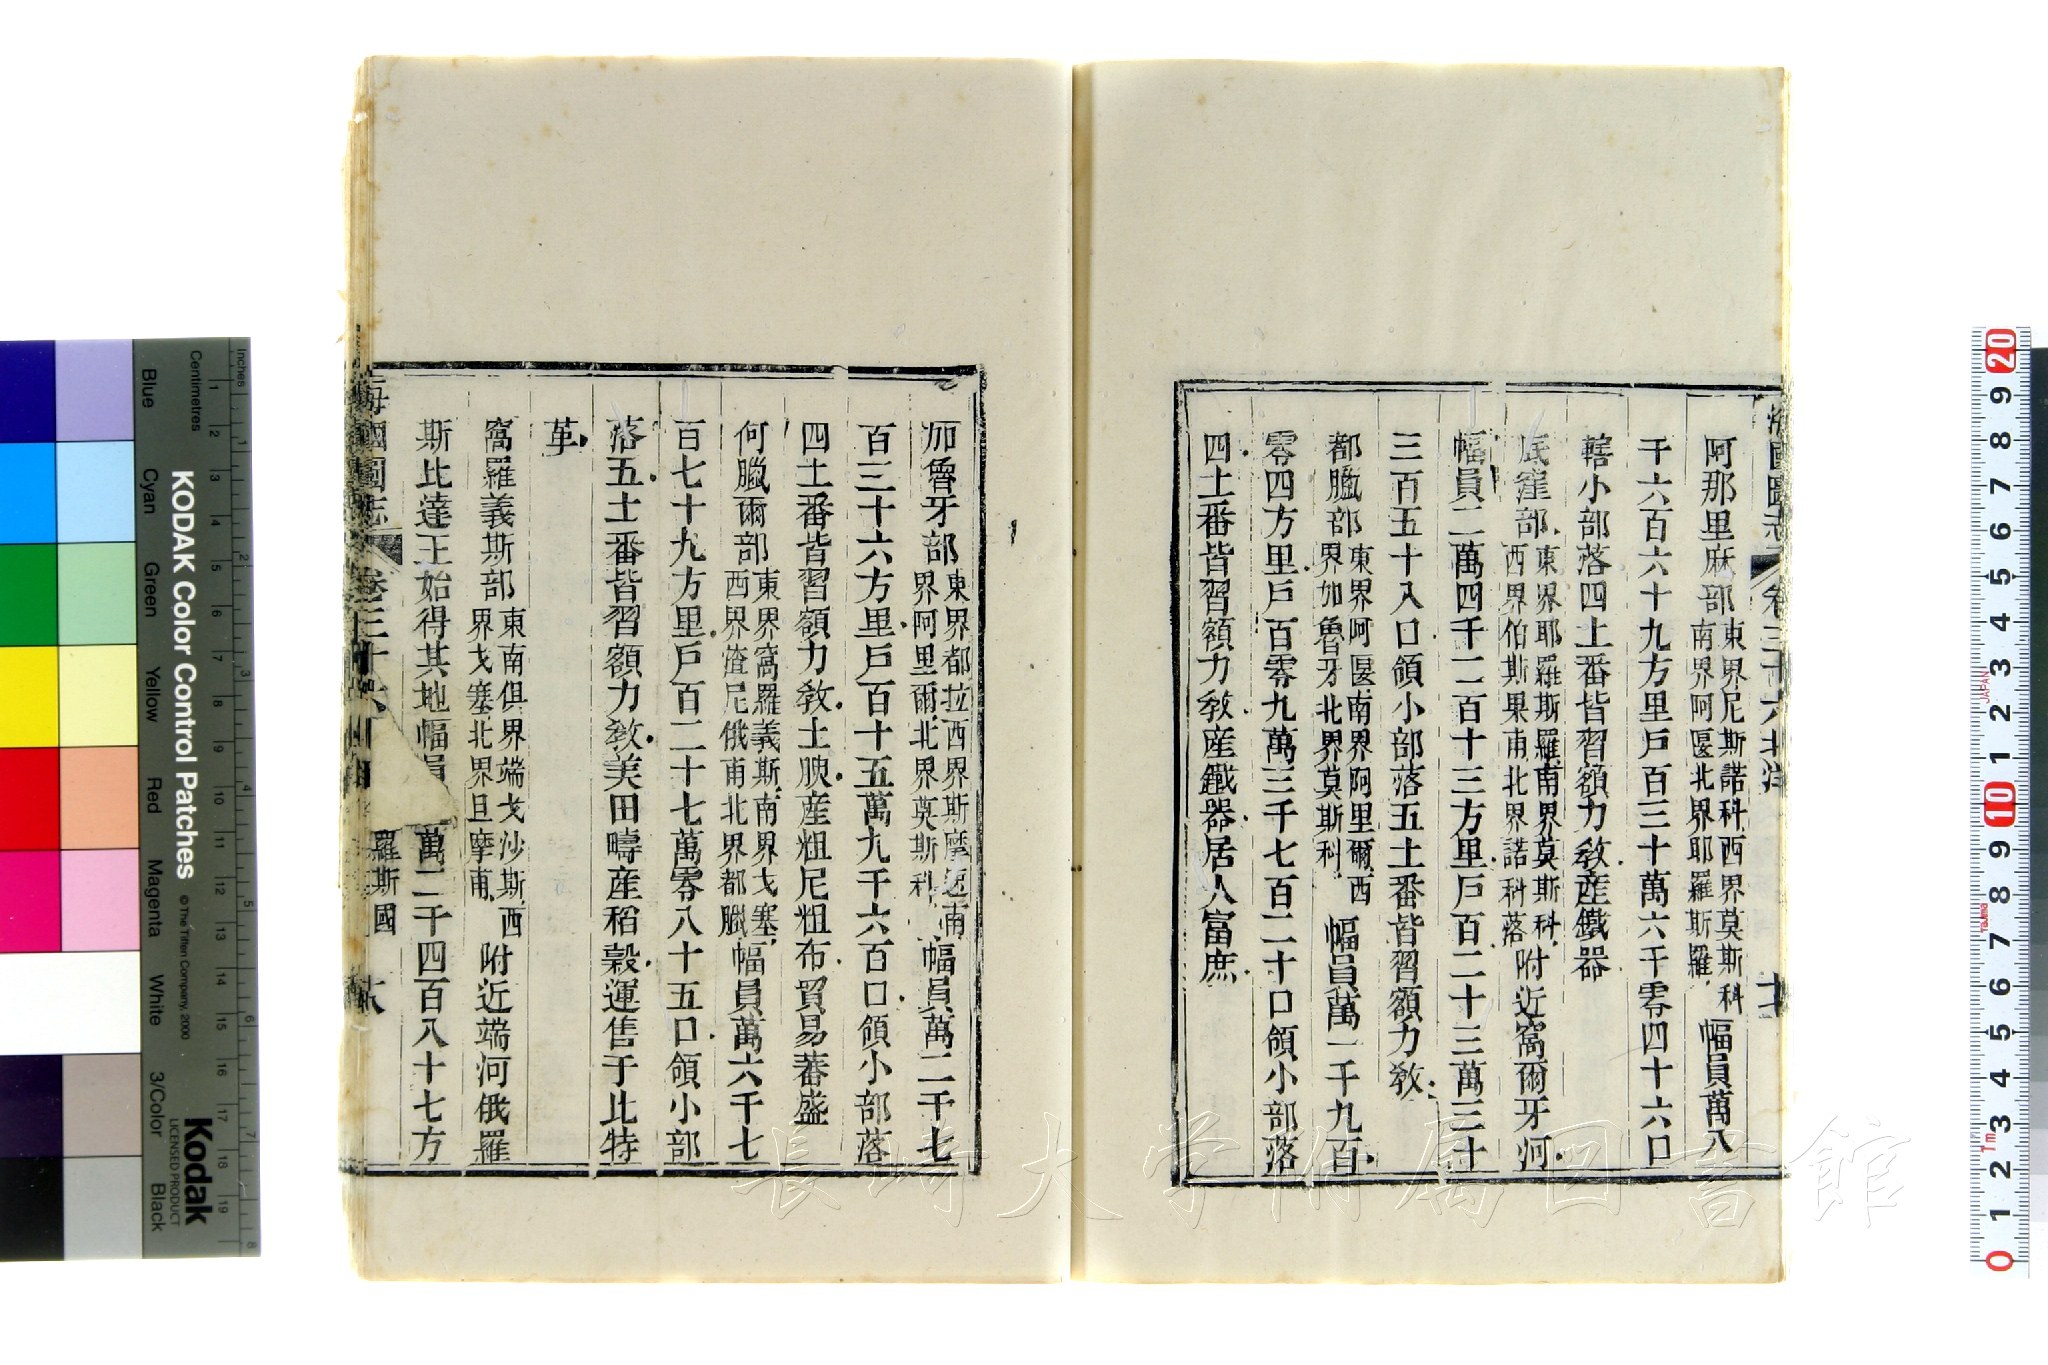 海國圖志 卷三十六 北洋
阿那里麻部東界尼斯諾科西界莫斯科南界阿匽北界耶羅斯羅幅員萬八
千六百六十九方里戶百三十萬六千零四十六口
轄小部落四土番皆習額力敎產鐵器
底窪部東界耶羅斯羅南界莫斯科西界伯斯果南北界諾科落附近窩爾牙河
幅員二萬四千二百十三方里戶百二十三萬三十
三百五十八口領小部落五土番皆習額力敎
都臘部東界阿匽南界阿里爾西界加魯牙北界莫斯科幅員萬一千九百
零四方里戶百零九萬三千七百二十口領小部落
四土番皆習額力敎產鐵器居人富庶
加魯牙部東界都拉西界斯摩連南界阿里爾北界莫斯科幅員萬二千七
百三十六方里戶百十五萬九千六百口領小部落
四土番皆習額力敎土腴產粗尼粗布貿易蕃盛
何臘爾部東界窩羅義斯南界戈塞西界渣尼俄南北界都臘幅員萬六千七
百七十九方里戶百二十七萬零八十五口領小部
落五土番皆習額力敎美田疇產稻穀運售于比特
革
窩羅義斯部東南俱界端戈沙斯西界戈塞北界旦摩甫附近端河俄羅
斯比達王始得其地幅員 萬二千四百八十七方
海國圖志 卷三十六 羅斯國
Blue
Cyan
Green
Yellow
Red
Magenta
White
3/Color
Black
KODAK Color Control Patches
©The Tiffen Company, 2000
Kodak
LICENSED PRODUCT
Inches
1 2 3 4 5 6 7 8
Centimetres
1 2 3 4 5 6 7 8 9 10 11 12 13 14 15 16 17 18 19
20 9 8 7 6 5 4 3 2 1 10 9 8 7 6 5 4 3 2 1 0
JAPAN
長崎大学附属図書館